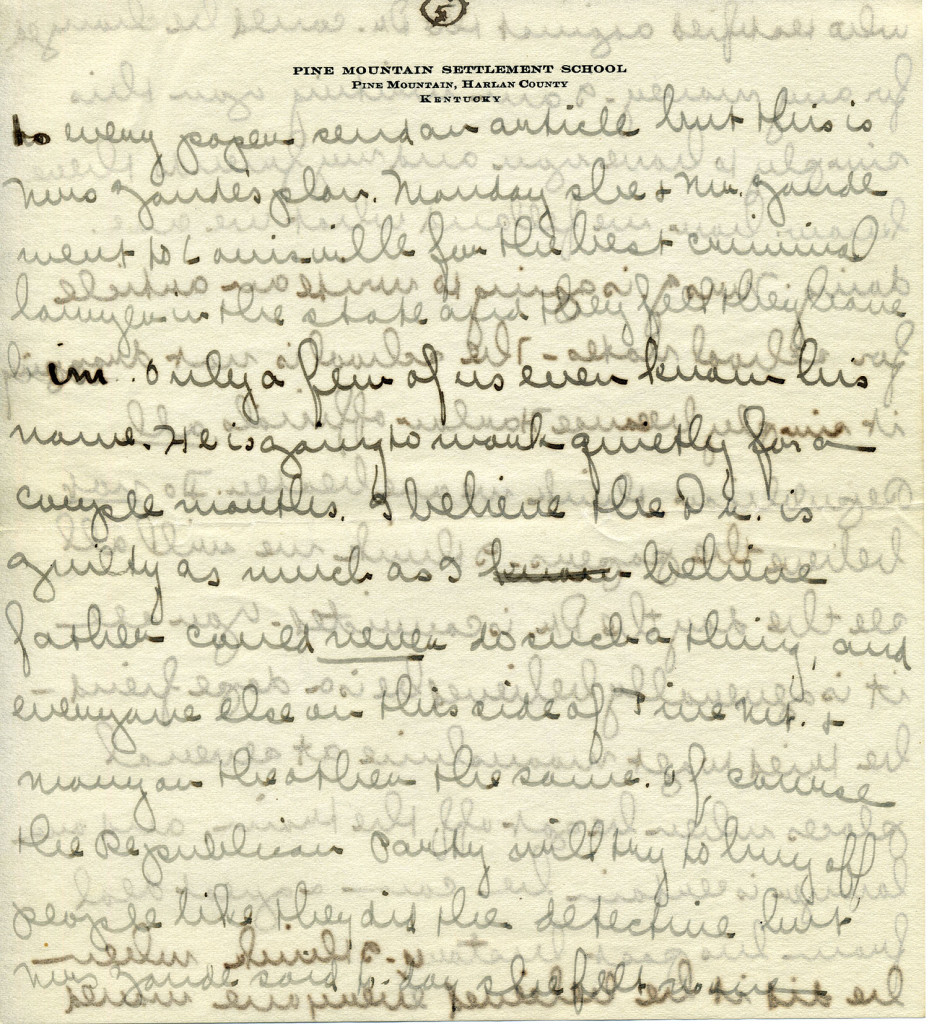 5
PINE MOUNTAIN SETTLEMENT SCHOOL
PINE MOUNTAIN, HARLAN COUNTY
KENTUCKY
to every paper send an article but this is
Mrs Zande's plan. Monday she & Mr. Zande
went to Louisville for the best criminal
lawyer in the state and they felt they have
him. Only a few of us even know his
name. He is going to work quietly for a
couple months. I believe the Dr. is
guilty as much as I know believe
father could never do such a thing, and
everyone else on this side of Pine Mt. &
many on the other the same. Of course
the Republican Party will try to buy off
people like they did the detective but
Mrs Zande said to-day she felt